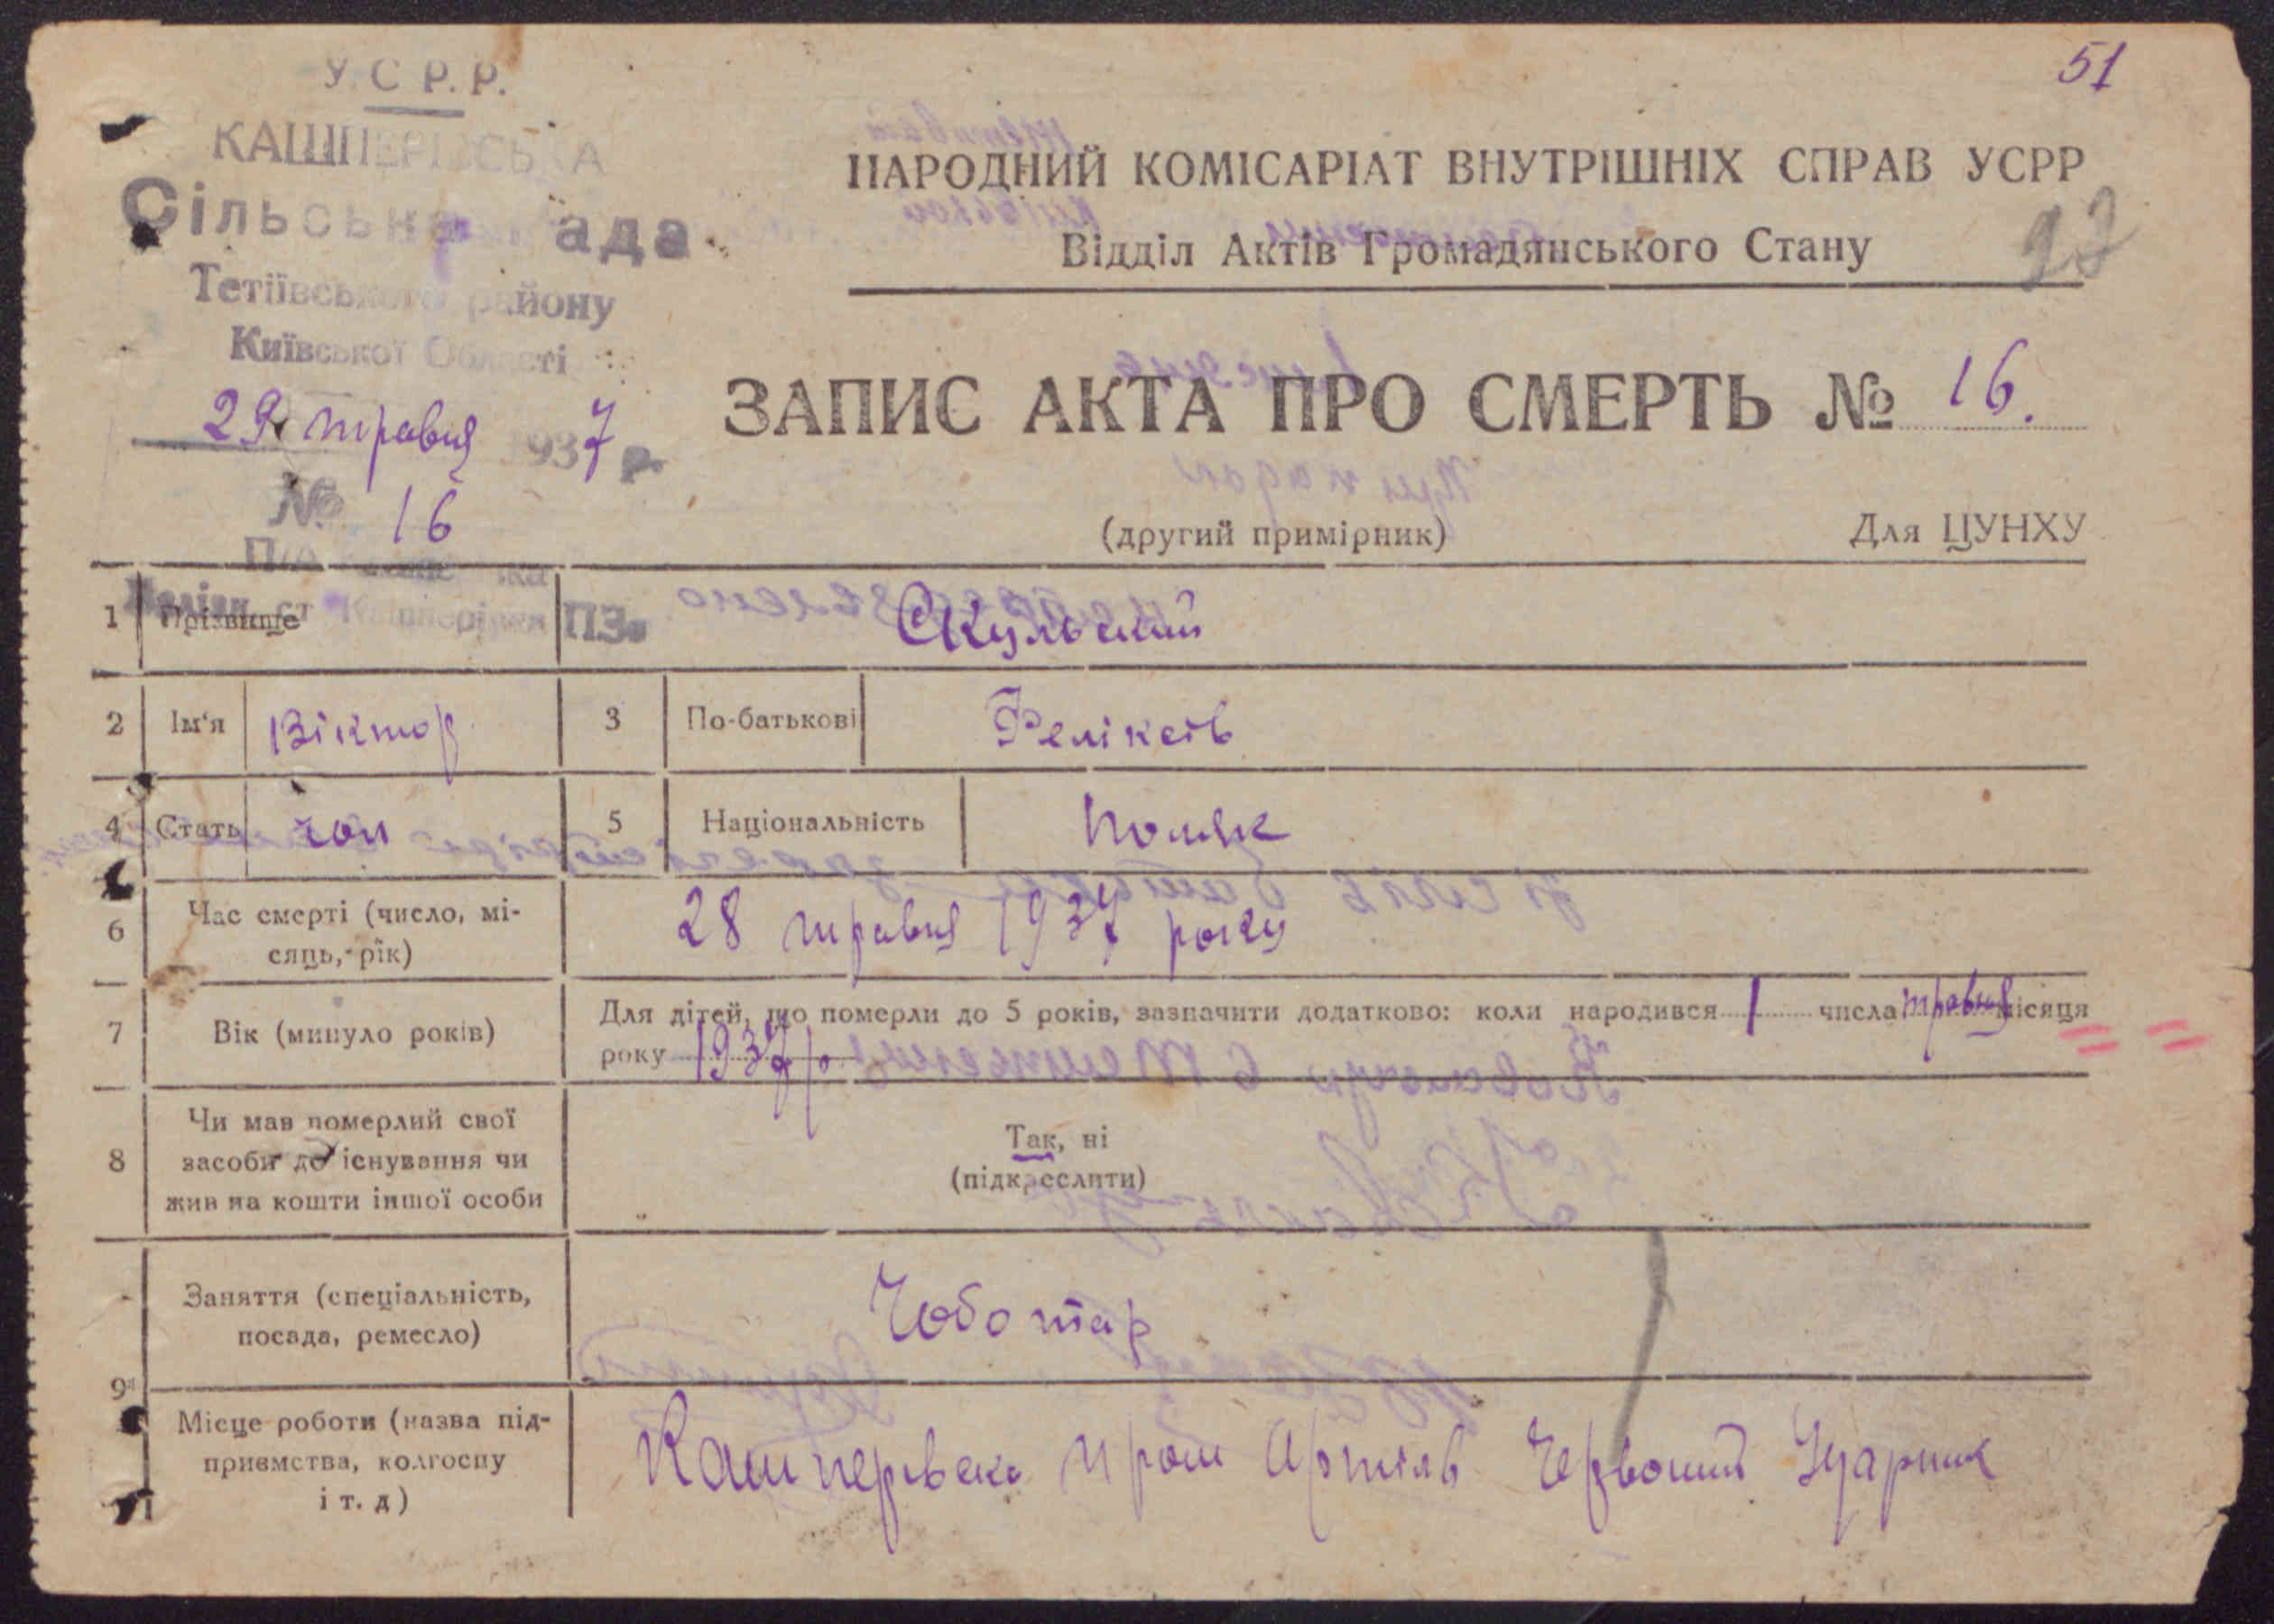 51
У.С.Р.Р.
КАШПЕРІВСЬКА
Сільська Рада
Тетіївського району
Київської Області
29 травня 1937 р.
№ 16
НАРОДНИЙ КОМІСАРІАТ ВНУТРІШНІХ СПРАВ УСРР
Відділ Актів Громадянського Стану
ЗАПИС АКТА ПРО СМЕРТЬ № 16.
(другий примірник) Для ЦУНХУ
1 Прізвище Скульский
2 Ім'я Віктор 3 По-батькові Феліксів
4 Стать чол 5 Національність поляк
6 Час смерті (число, мі-
сяць, рік) 28 травня 1937 року
7 Вік (минуло років) Для дітей, що померли до 5 років, зазначити додатково: коли народився 1 числа травня місяця
року 1937 р.
8 Чи мав померлий свої
засоби до існування чи
жив на кошти іншої особи
Так, ні
(підкреслити)
9 Заняття (спеціальність,
посада, ремесло) Чоботар
Місце роботи (назва під-
приємства, колгоспу
і т. д) Кашперівска пром Артіль Червоний Ударник